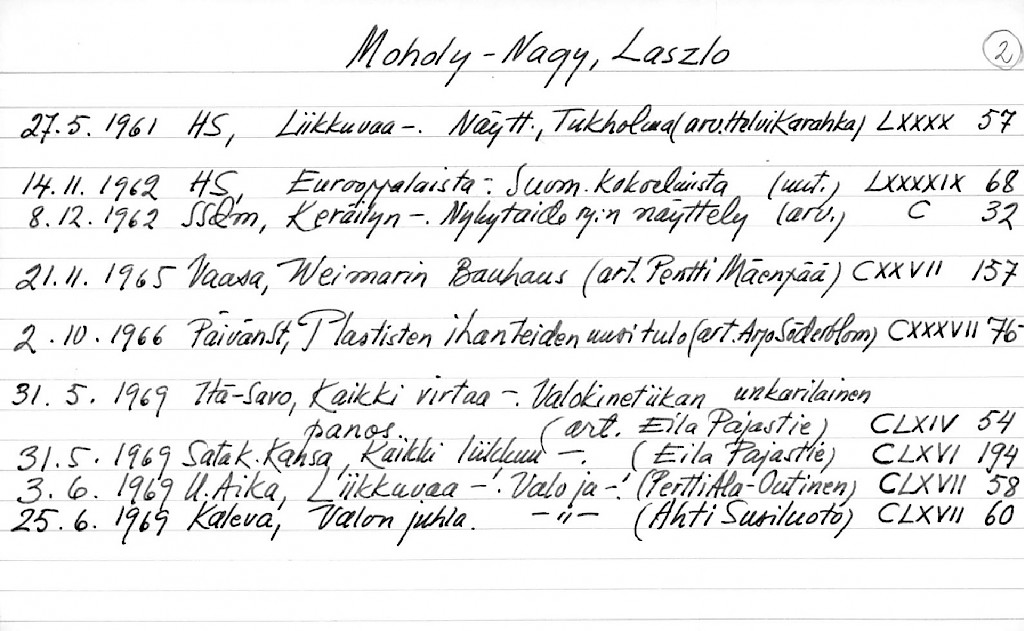 Moholy-Nagy, Laszlo 2
27.5.1961 HS, Liikkuvaa-. Näytt., Tukholma (arv. Helvi Karahka) LXXXX 57
14.11.1962 HS, Eurooppalaista-: Suom. kokoelmista (uut.) LXXXXIX 68
8.12.1962 SSdm, Keräilyn-. Nykytaide ry:n näyttely (arv.) C 32
21.11.1965 Vaasa, Weimarin Bauhaus (art. Pentti Mäenpää) CXXVII 157
2.10.1966 PäivänSt, Plastisten ihanteiden uusi tulo (art. Arjo Söderblom) CXXXVII 76
31.5.1969 Itä-Savo, Kaikki virtaa-. Valokinetiikan unkarilainen
panos. (art. Eila Pajastie) CLXIV 54
31.5.1969 Satak. Kansa, Kaikki liikkuu -. (Eila Pajastie) CLXVI 194
3.6.1969 U. Aika, Liikkuvaa -'. Valo ja -'. (Pertti Ala-Outinen) CLXVII 58
25.6.1969 Kaleva, Valon juhla. -"- (Ahti Susiluoto) CLXVII 60